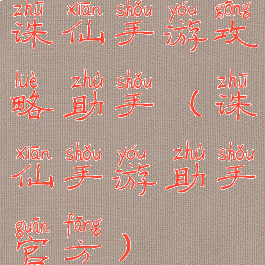 zhū xiān shǒu yóu gōng
诛仙手游攻
lüè zhù shǒu zhū
略助手（诛
xiān shǒu yóu zhù shǒu
仙手游助手
guān fāng
官方）